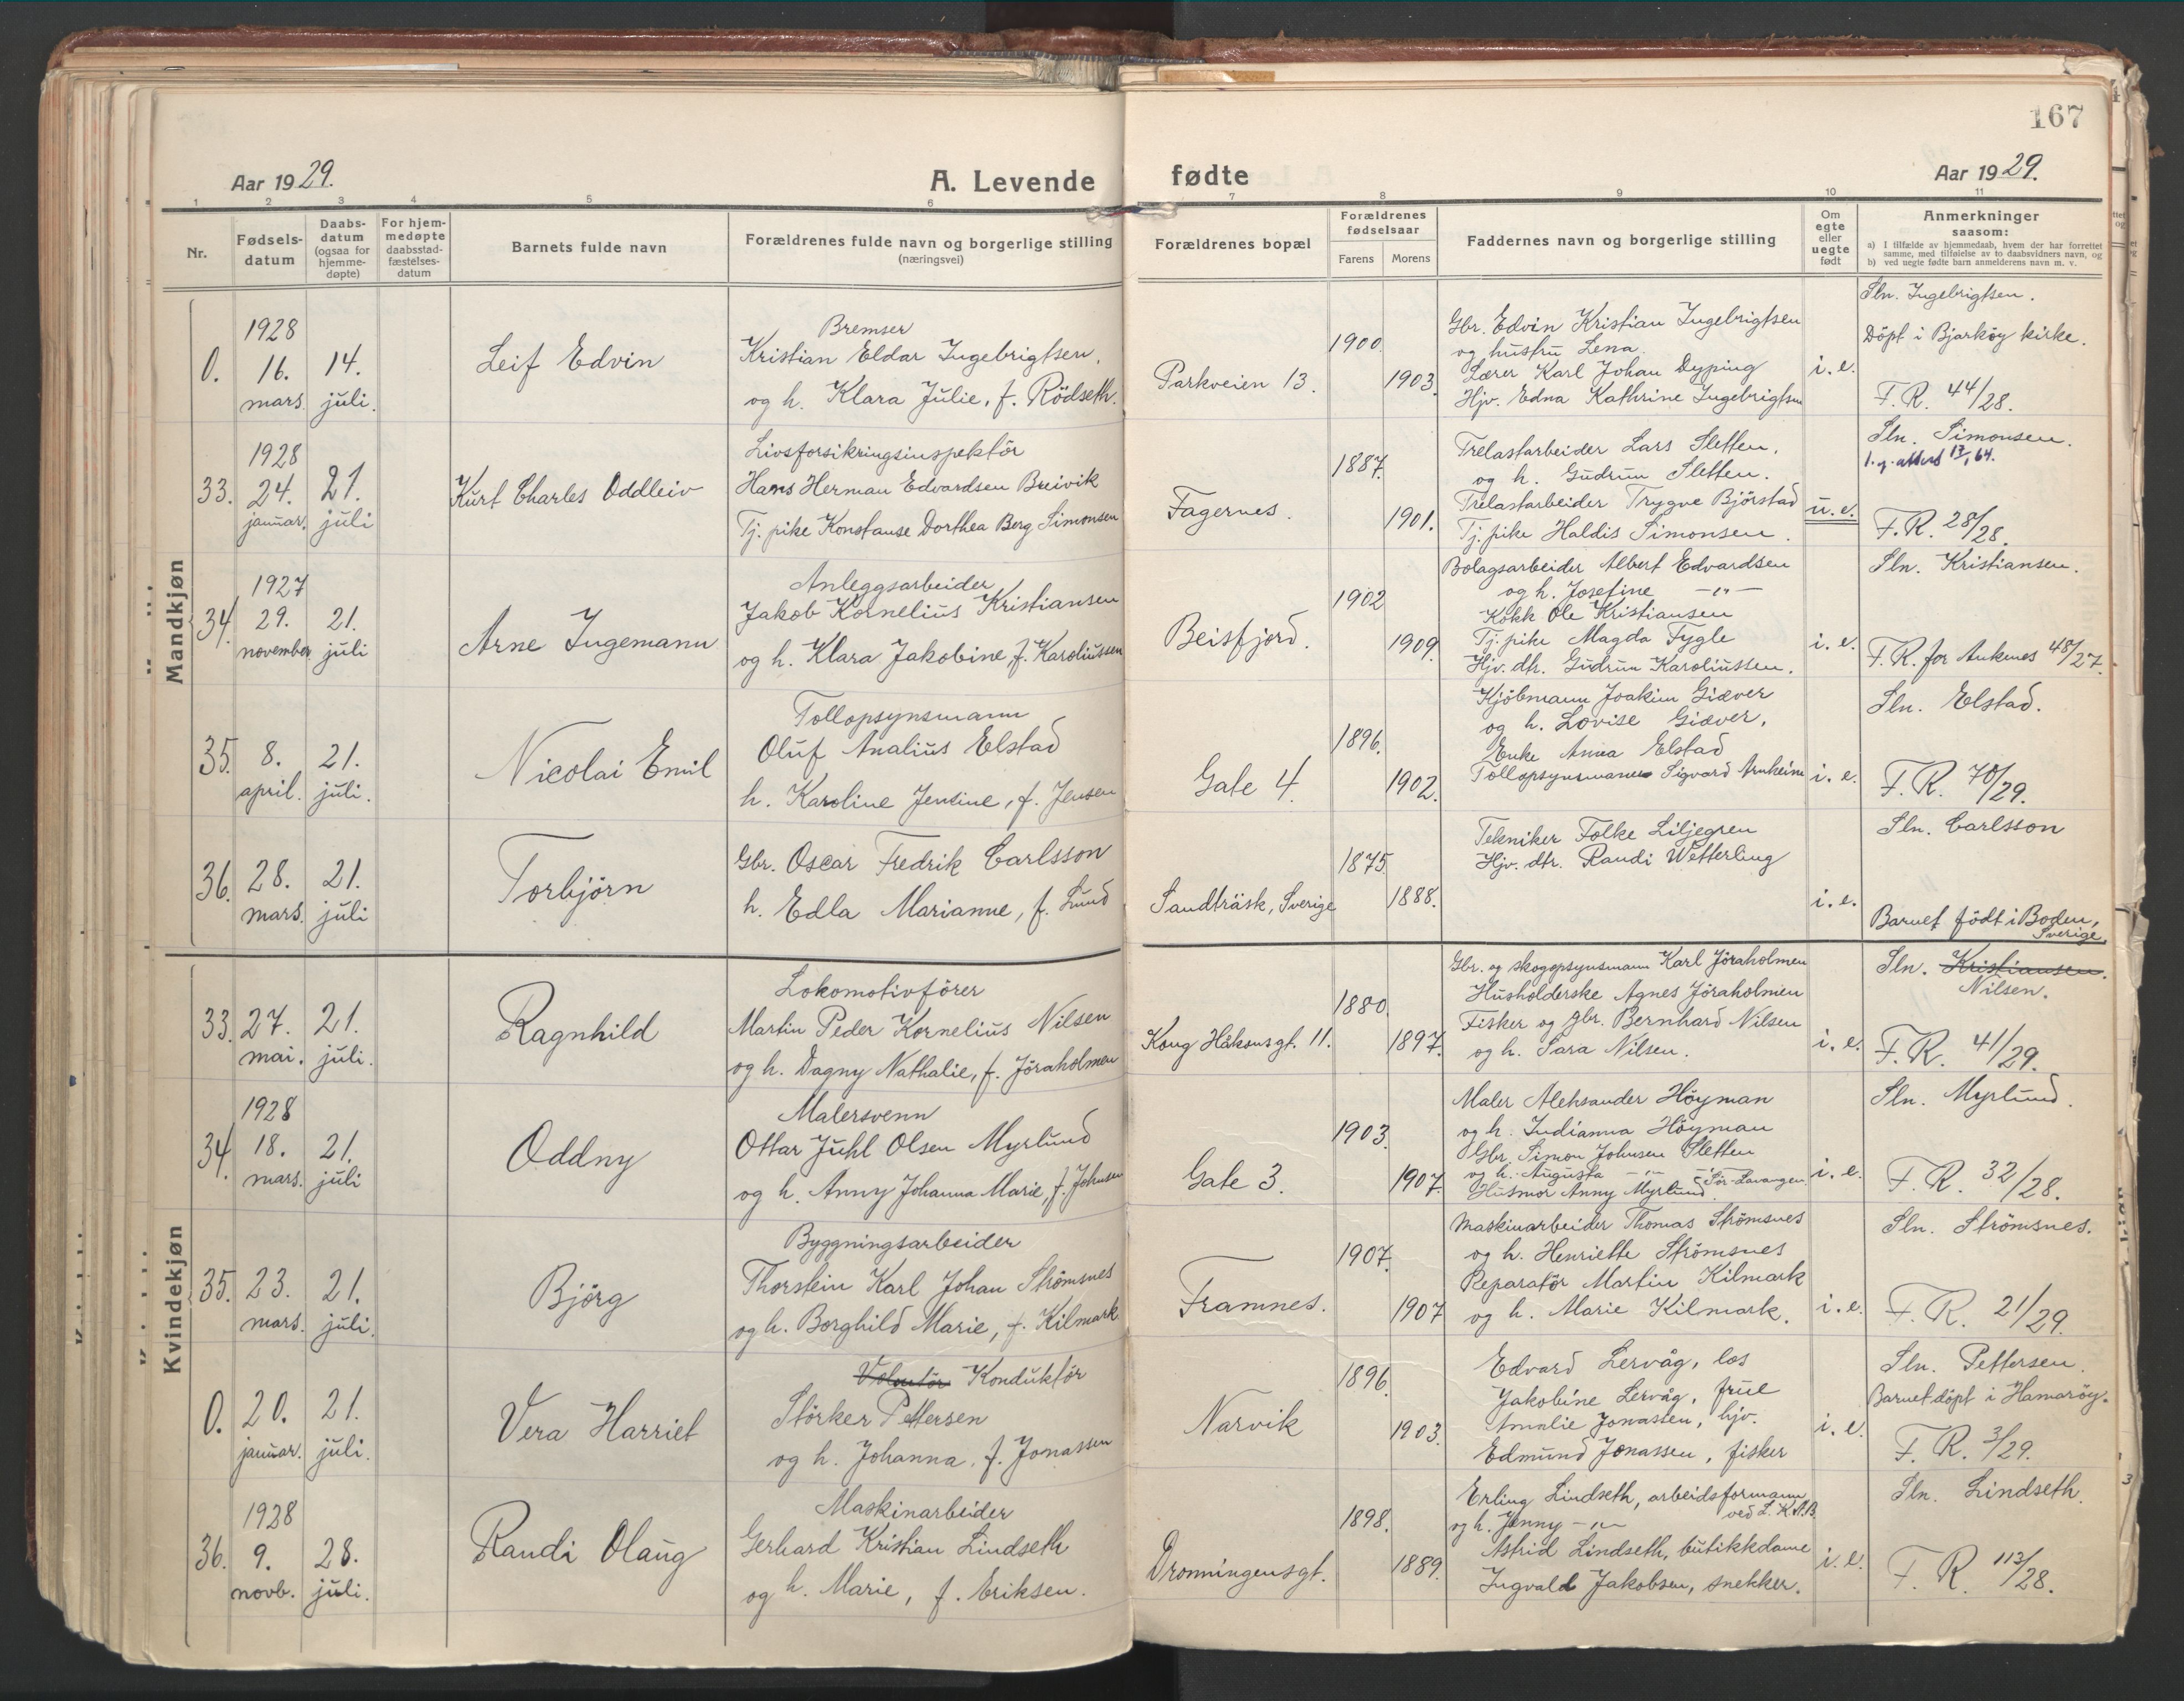 167
Aar 1929.
A. Levende fødte
Aar 1929.
1 2 3 4 5 6 7 8 9 10 11
Nr.
Fødsels-
datum
Daabs-
datum
(ogsaa for
hjemme-
døpte)
For hjem-
medøpte
daabsstad-
fæstelses-
datum
Barnets fulde navn
Forældrenes fulde navn og borgerlige stilling
(næringsvei)
Forældrenes bopæl
Forældrenes
fødselsaar
Farens Morens
Faddernes navn og borgerlige stilling
Om
egte
eller
uegte
født
Anmerkninger
saasom:
a) I tilfælde av hjemmedaab, hvem der har forrettet
samme, med tilføielse av to daabsvidners navn, og
b) ved uegte fødte barn anmelderens navn m. v.
Mandkjøn
0.
1928
16.
mars.
14.
juli.
Leif Edvin
Bremser
Kristian Eldar Ingebrigtsen,
og h. Klara Julie, f. Rödseth.
Parkveien 13.
1900.
1903.
Gbr. Edvin Kristian Ingebrigtsen
og hustru Lena.
Lærer Karl Johan Dyping
Hjv. Edna Kathrine Ingebrigtsen
i. e.
Sln. Ingebrigtsen.
Döpt i Bjarköy kirke.
F. R. 44/28.
33.
1928
24.
januar.
21.
juli
Kurt Charles Oddleiv
Livsforsikringsinspektör
Hans Herman Edvardsen Breivik
Tj. pike Konstanse Dorthea Berg Simonsen
Fagernes.
1887.
1901.
Trelastarbeider Lars Sletten,
og h. Gudrun Sletten.
Trelastarbeider Trygve Björstad
Tj. pike Haldis Simonsen.
u. e.
Sln. Simonsen.
F. R. 28/28.
34.
1927
29.
november
21.
juli
Arne Ingemann
Anleggsarbeider
Jakob Kornelius Kristiansen
og h. Klara Jakobine, f. Karoliussen
Beisfjord.
1902
1909.
Bolagsarbeider Albert Edvardsen
og h. Josefine —"—
Kokk Ole Kristiansen
Tj. pike Magda Fygle
Hjv. dtr. Gudrun Karoliussen.
i. e.
Sln. Kristiansen.
F. R. for Ankenes 48/27.
35.
8.
april.
21.
juli.
Nicolai Emil
Tollopsynsmann
Oluf Analius Elstad
h. Karoline Jensine, f. Jensen
Gate 4.
1896.
1902.
Kjöbmann Joakim Giæver
og h. Lovise Giæver,
Enke Anna Elstad
Tollopsynsmann Sigvard Arnheim
i. e.
Sln. Elstad.
F. R. 70/29.
36.
28.
mars.
21.
juli
Torbjörn
Gbr. Oscar Fredrik Carlsson
h. Edla Marianne, f. Lund
Sandträsk, Sverige
1875.
1888.
Tekniker Folke Liljegren
Hjv. dtr. Randi Wetterling
i. e.
Sln. Carlsson
Barnet födt i Boden,
Sverige.
Kvindekjøn
33.
27.
mai.
21.
juli.
Ragnhild
Lokomotivförer
Martin Peder Kornelius Nilsen
og h. Dagny Nathalie, f. Jöraholmen
Kong Håkonsgt. 11.
1880.
1897.
Gbr. og skogopsynsmann Karl Jöraholmen
Husholderske Agnes Jöraholmen
Fisker og gbr. Bernhard Nilsen
og h. Sara Nilsen.
i. e.
Sln. Kristiansen.
Nilsen.
F. R. 41/29.
34.
1928
18.
mars.
21.
juli
Oddny
Malersvenn
Ottar Juhl Olsen Myrlund
og h. Anny Johanna Marie, f. Johnsen
Gate 3.
1903.
1907.
Maler Aleksander Höyman
og h. Indianna Höyman
Gbr. Simon Johnsen Sletten
og h. Augusta —"— Sör-Lavangen
Husmor Anny Myrlund.
i. e.
Sln. Myrlund.
F. R. 32/28.
35.
23.
mars.
21.
juli.
Björg
Byggningsarbeider
Thorstein Karl Johan Strömsnes
og h. Borghild Marie, f. Kilmark
Framnes.
1907.
1907
Maskinarbeider Thomas Strömsnes
og h. Henriette Strömsnes
Reparatör Martin Kilmark
og h. Marie Kilmark.
i. e.
Sln. Strömsnes.
F. R. 21/29.
0.
20.
januar.
21.
juli.
Vera Harriet
Volontör Konduktör
Störker Pettersen
og h. Johanna, f. Jonassen
Narvik
1896.
1903.
Edvard Lervåg, los
Jakobine Lervåg, frue
Amalie Jonassen, hjv.
Edmund Jonassen, fisker
i. e.
Sln. Pettersen.
Barnet döpt i Hamaröy.
F. R. 3/29.
36.
1928
9.
novb.
28.
juli.
Randi Olaug
Maskinarbeider
Gerhard Kristian Lindseth
og h. Marie, f. Eriksen.
Dronningensgt.
1898.
1889.
Erling Lindseth, arbeidsformann
ved L.K.A.B.
og h. Jenny —"—
Astrid Lindseth, butikkdame
Ingvald Jakobsen, snekker.
i. e.
Sln. Lindseth.
F. R. 113/28.